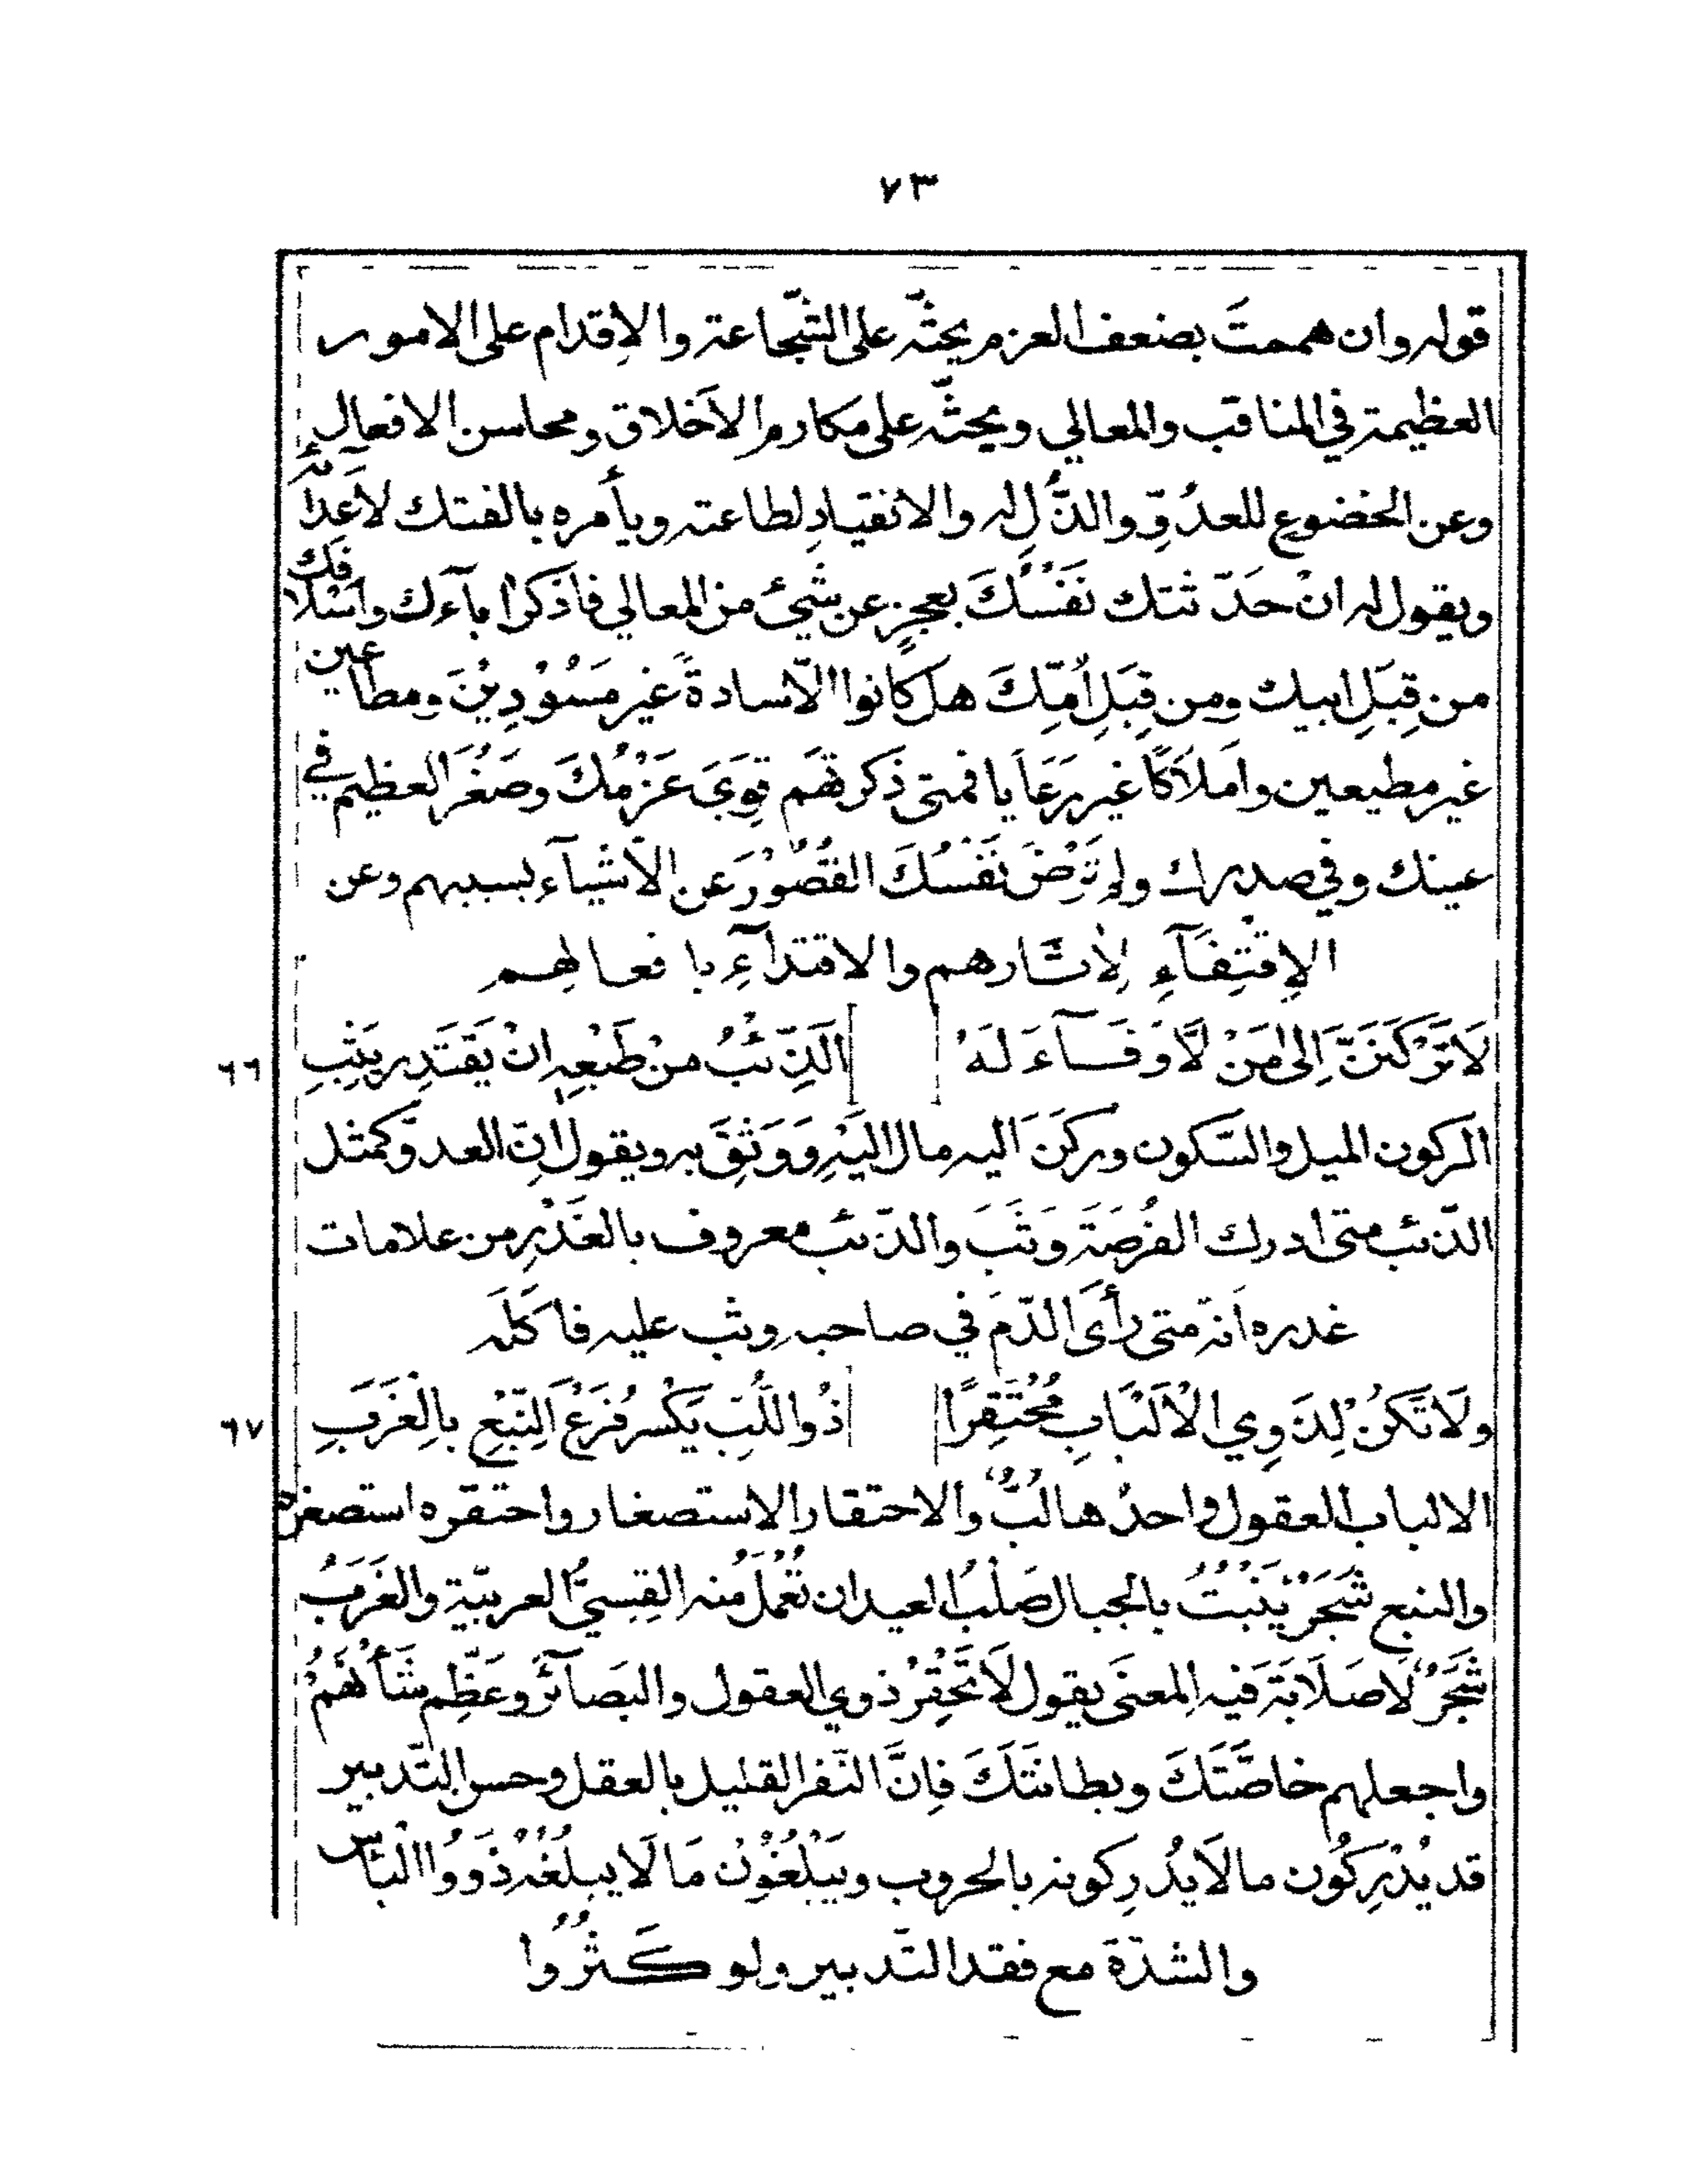 ٧٣
قوله وان هممتَ بضعف العزم يحثّه على الشّجاعة والإقدام على الامور
العظيمة في المناقب والمعالي ويحثّه على مكارم الأخلاق ومحاسن الافعال
وعن الخضوع للعدُوّ والذُّلِ له والانقيادِ لطاعته ويأمره بالفتك لأعدآئه
ويقول له انْ حَدّثتك نَفْسُكَ بعجزٍ عن شيئ من المعالي فاذكر اباءك واسلافك
من قِبَلِ ابيك ومن قِبَلِ أمّكَ هل كانوا الّا سادةً غير مَسُوْدِيْنَ ومطاعين
غير مطيعين واملاكًا غير رَعَايا فمتى ذكرتهم قوِيَ عَزْمُكَ وصَغُرَ العظيم في
عينك وفي صدرك ولم تَرْضَ نَفْسُكَ القُصُوْرَ عن الأشيآء بسببهم وعن
الإقْتِفَآءِ لِأثَارهم والاقتدآءِ بافعالهم
لَا تَرْكَنَنَّ إِلى مَنْ لَّا وَفَآءَ لَهُ الَذِّئْبُ منْ طَبْعِهِ انْ يَقْتَدِر يَثِبِ ٦٦
الركون الميل والسّكون وركَنَ اليه مال اليَهِ وَوَثِقَ به ويقول انّ العدوّ كمثل
الذّئب متى ادرك الفُرصَةَ وَثَبَ والذّئب معروف بالغَدْرِ من علامات
غدره انّه متى رأى الدّمَ في صاحبه وثب عليه فاكَلَه
ولَا تَكُنْ لِذَوِي الْألَبْابِ مُحْتَقِرًا ذُو اللُّبِّ يَكْسر فَرْعَ النَبْعِ بالِغَرَبِ ٦٧
الالباب العقول واحدُها لُبٌّ والاحتقار الاستصغار واحتقره استصغره
والنبع شَجَرٌ يَنْبُتُ بالجبال صَلْبُ العيدان تُعْمَلُ منه القِسِيُّ العربيّة والغَرَبُ
شَجَرٌ لَا صَلَابَةَ فيه المعنَى يقول لَا تَحْقِرْ ذوي العقول والبَصآئر وعَظِّم شَأنَهُمْ
واجعلهم خاصَّتَكَ وبطانَتَكَ فإنَّ النّفر القليل بالعقل وحسن التّدبير
قد يُدْرِكُون ما لَا يُدْرِكونه بالحروب ويَبْلُغُوْنَ مَا لَا يبلُغُهْ ذَوُوا الْبأس
والشدّة مع فقد التّدبير ولو كَثُرُوا